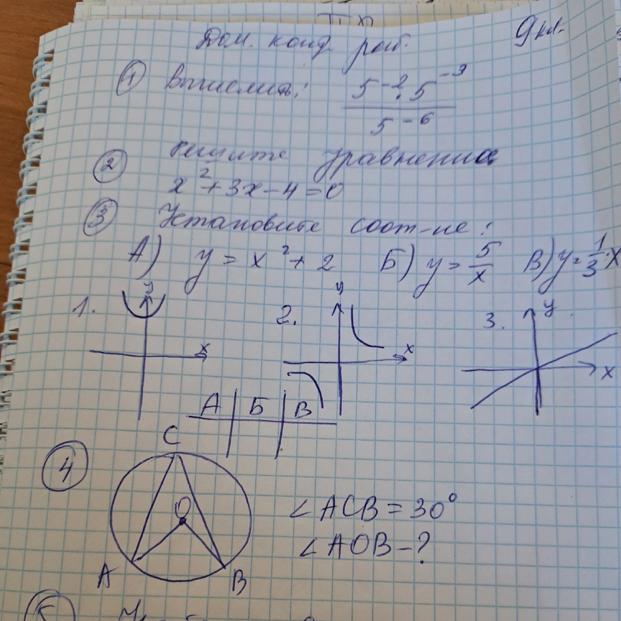 Дом. конд. раб. 9 кл.
① Вычислить: 5⁻²·5⁻⁹ / 5⁻⁶
② Решите уравнения
x²+3x-4=0
③ Установите соот-ие:
А) y = x²+2 Б) y = 5/x В) y = 1/3·x
1. y x 2. y x 3. y x
А Б В
④ C
O
A B
∠ACB = 30°
∠AOB - ?
⑤